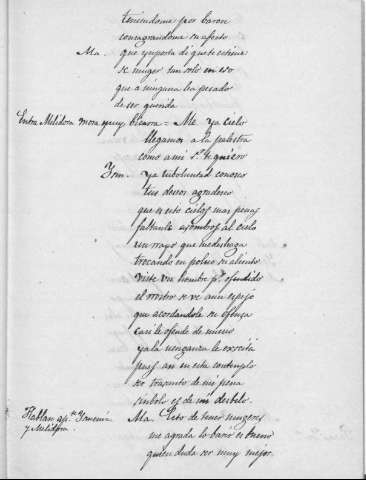 teniendome por baron
consagrandome su afecto
Ma. que ynporta di que te estime
se muger tan solo en eso
que a ninguna lea pesado
de ser querida
Entra Melidora mora muy bizarra = Me. Ya cielo
llegamos a la palestra
como a mi Sr. te quiero
Ysm. ya tu boluntad conosco
tus deseos agradesco
que en esto cielos mas penas
faltan asombros al cielo
un rayo que me desaga
trocando en polvo mi aliento
viste un hombre ofendido
el rostro se ve a un espejo
que acordandole su ofensa
casi le ofende de nuevo
y a la venganza le exscita
pues asi en esta contemplo
un trasunto de mi pena
simbolo es de mi desbelo.
Hablan ap.te Ysmenia y Melidora.
Ma. Esto de tener mugeres
me agrada lo baril es bueno
quien duda ser muy mejor.